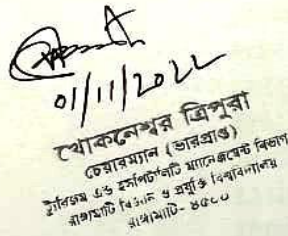 01/11/2022
খোকনেশ্বর ত্রিপুরা
চেয়ারম্যান (ভারপ্রাপ্ত)
ট্যুরিজম এন্ড হসপিটালিটি ম্যানেজমেন্ট বিভাগ
রাঙ্গামাটি বিজ্ঞান ও প্রযুক্তি বিশ্ববিদ্যালয়
রাঙ্গামাটি- ৪৫০০